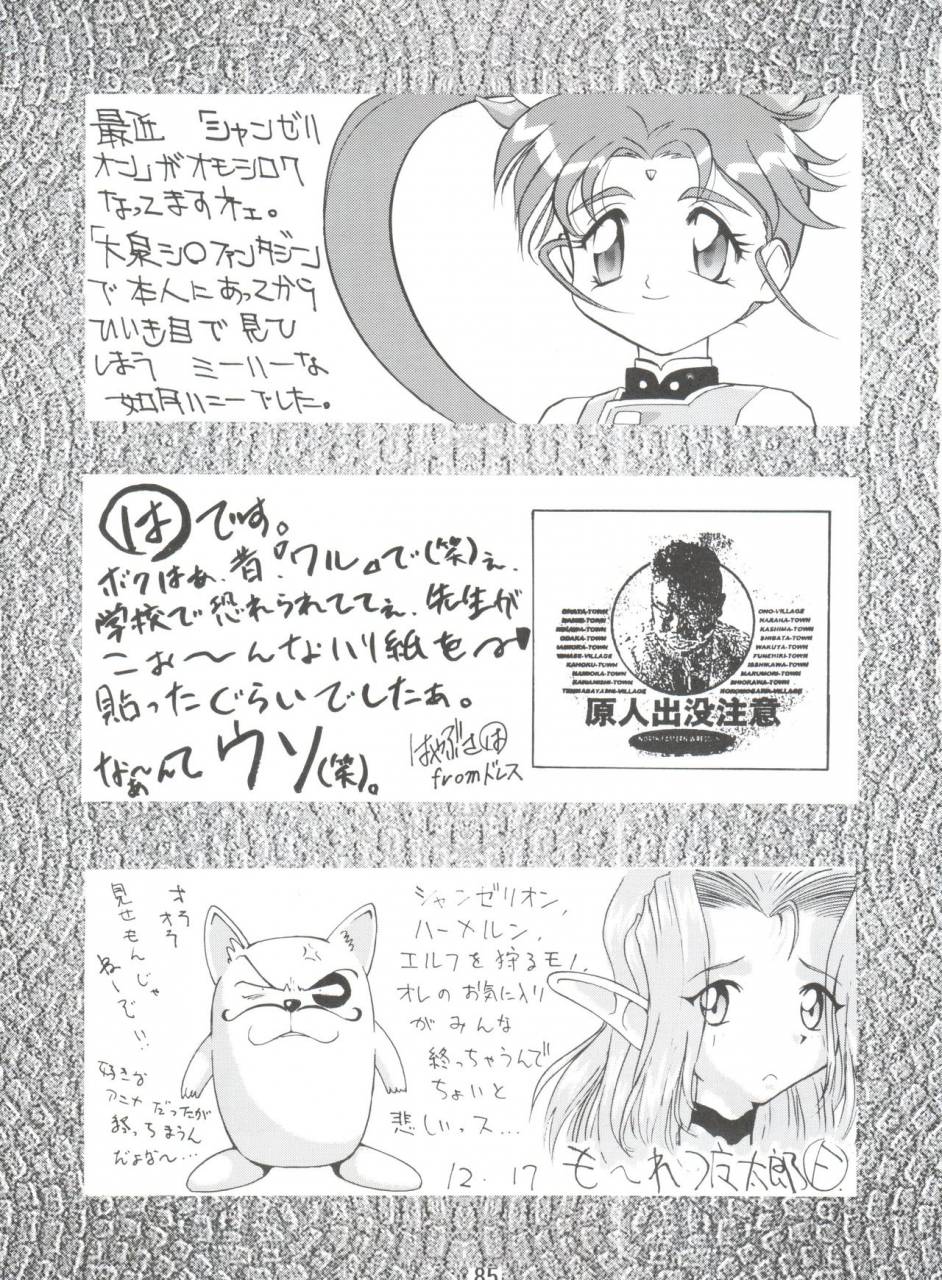 最近 「シャンゼリ
オン」がオモシロク
なってますネェ。
「大泉シ○ファンタジーン」
で本人にあってから
ひいき目で見ひ
しまう ミーハーな
如月ハニーでした。
は です。
ボクはぁ、昔『ワル』で(笑)ぇ、
学校で恐れられててぇ、先生が
こぉ〜んなハリ紙を〜
貼ったぐらいでしたぁ。
なぁ〜んて ウソ(笑)。
はやぶさは
fromドレス
ONO-VILLAGE
KASHIMA-TOWN
SHIBATA-TOWN
WAKUYA-TOWN
FUNEHIKI-TOWN
ISHIKAWA-TOWN
MARUMORI-TOWN
KAMOKU-TOWN
原人出没注意
オラオラ
見せもんじゃ
ねーで!!
好きな
アニメだったが
終っちまうん
だよな〜…
シャンゼリオン、
ハーメルン、
エルフを狩るモノ、
オレのお気に入り
がみんな
終っちゃうんで
ちょいと
悲しいっス…
12.17
も〜れつ
太郎
85